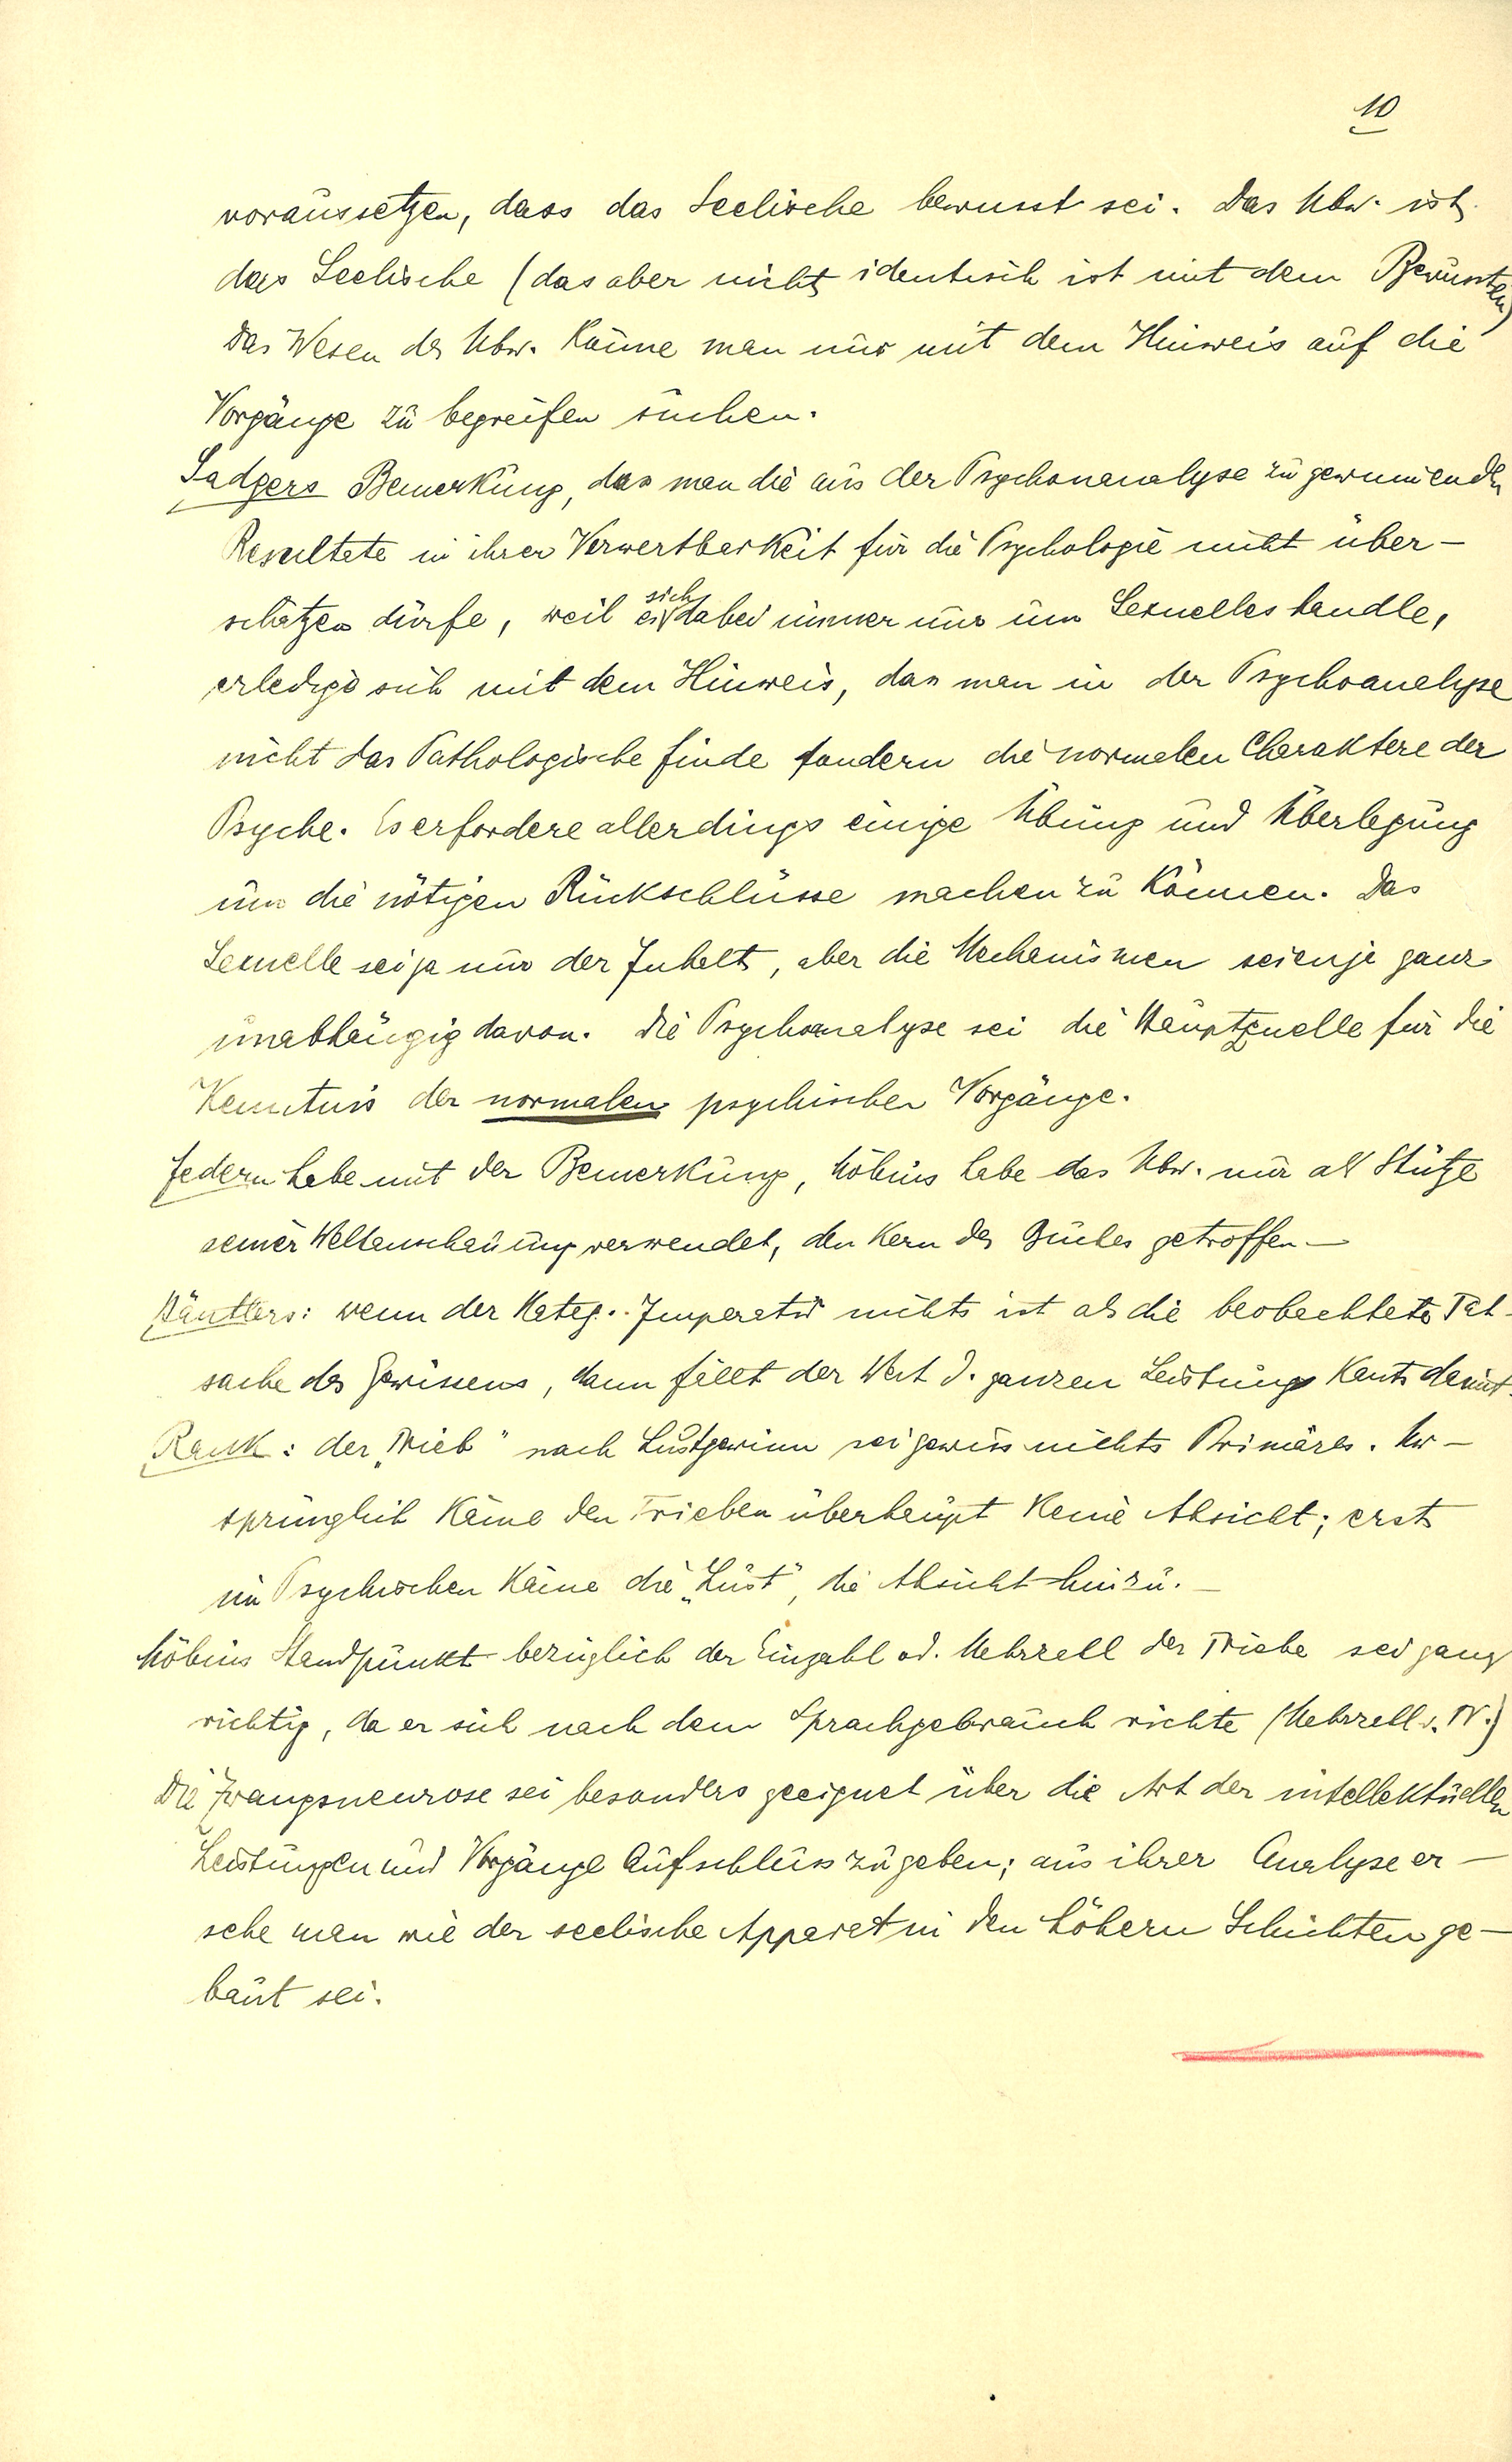 10
voraussetzen, dass das Seelische bewusst sei. Das Ubw. ist
das Seelische (das aber nicht identisch ist mit dem Bewussten)
Das Wesen des Ubw. könne man nur mit dem Hinweis auf die
Vorgänge zu begreifen suchen.
Sadgers Bemerkung, dass man die aus der Psychonanalyse zu gewinnenden
Resultate in ihrer Verwertbarkeit für die Psychologie nicht über-
schätzen dürfe, weil es sich dabei immer nur um Sexuelles handle,
erledige sich mit dem Hinweis, dass man in der Psychoanalyse
nicht das Pathologische finde sondern die normalen Charaktere der
Psyche. Es erfordere allerdings einige Übung und Überlegung
um die nötigen Rückschlüsse machen zu können. Das
Sexuelle sei ja nur der Inhalt, aber die Mechanismen seien ja ganz
unabhängig davon. Die Psychoanalyse sei die Hauptquelle für die
Kenntnis der normalen psychischen Vorgänge.
Federn habe mit der Bemerkung, Möbius habe das Ubw. nur als Stütze
seiner Weltanschauung verwendet, den Kern des Buches getroffen —
Häutlers: wenn der Kateg. Imperativ nichts ist als die beobachtete Tat-
sache des Gewissens, dann fällt der Wert d. ganzen Leistung Kants damit.
Rank: der „Trieb" nach Lustgewinn sei gewiss nichts Primäres. Ur-
sprünglich käme den Trieben überhaupt keine Absicht; erst
im Psychischen käme die „Lust", die Absicht hinzu. —
Möbius Standpunkt bezüglich der Einzahl od. Mehrzahl der Triebe sei ganz
richtig, da er sich nach dem Sprachgebrauch richte (Mehrzahl v. N.)
Die Zwangsneurose sei besonders geeignet über die Art der intellektuellen
Leistungen und Vorgänge Aufschluss zu geben; aus ihrer Analyse er-
sehe man wie der seelische Apparat in den höhern Schichten ge-
baut sei.